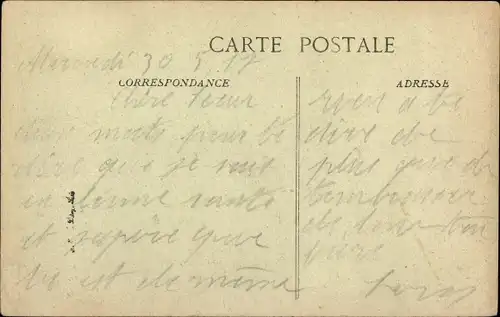 CARTE POSTALE
Mercredi 30 5 17
CORRESPONDANCE
ADRESSE
Chère Sœur
deux mots pour te
dire que je suis
en bonne santé
et espère que
toi est de même
rien a te
dire de
plus que de
de
ton
frère